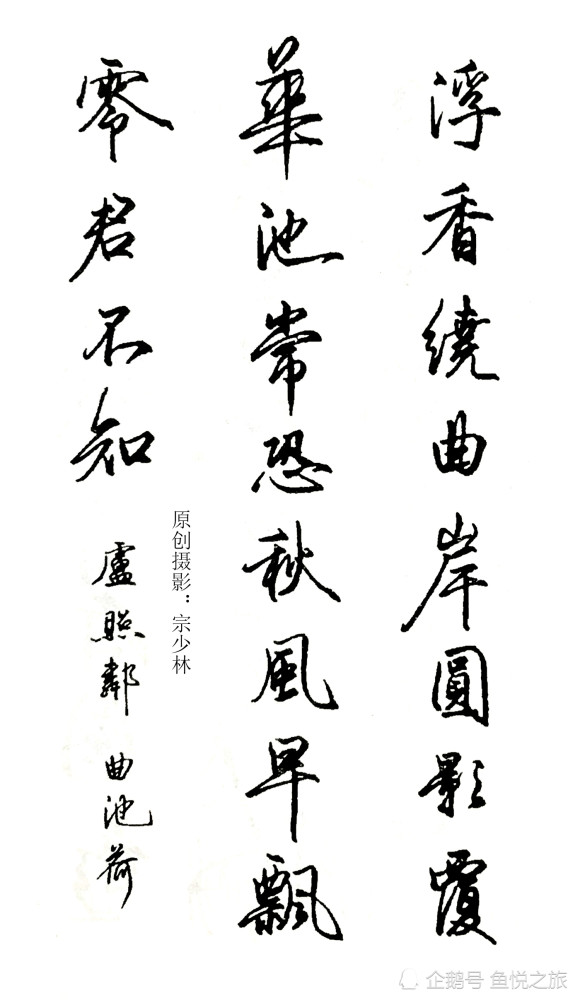 浮香繞曲岸圓影覆
華池常恐秋風早飄
零君不知
盧照鄰 曲池荷
原创摄影：宗少林
企鹅号 鱼悦之旅